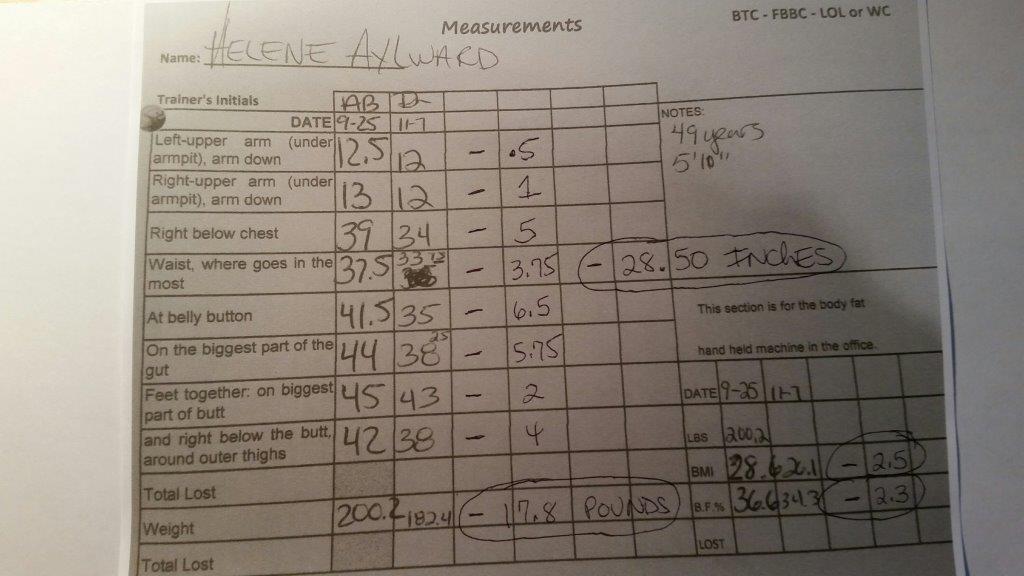 Measurements
BTC - FBBC - LOL or WC
Name: HELENE AYLWARD
Trainer's Initials AB
DATE 9-25 11-7
NOTES:
49 years
5'10"
Left-upper arm (under armpit), arm down 12.5 12 - .5
Right-upper arm (under armpit), arm down 13 12 - 1
Right below chest 39 34 - 5
Waist, where goes in the most 37.5 33 - 3.75
- 28.50 INCHES
At belly button 41.5 35 - 6.5
This section is for the body fat
hand held machine in the office.
On the biggest part of the gut 44 38 25 - 5.75
Feet together: on biggest part of butt 45 43 - 2
DATE 9-25 11-7
and right below the butt, around outer thighs 42 38 - 4
LBS 200.2
BMI 28.6 26.1 - 2.5
Total Lost
Weight 200.2 182.4 - 17.8 POUNDS
B.F.% 36.6 34.3 - 2.3
LOST
Total Lost